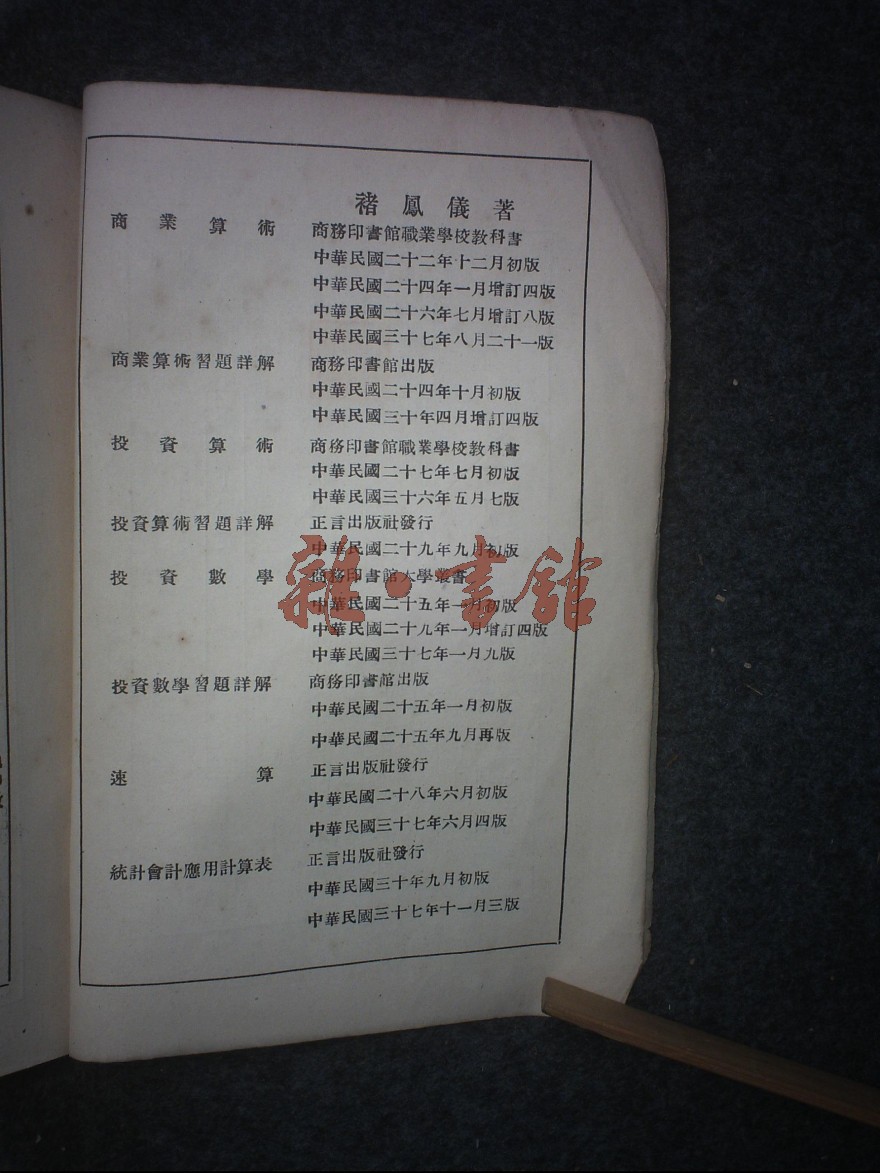 褚鳳儀著
商業算術 商務印書館職業學校教科書
中華民國二十二年十二月初版
中華民國二十四年一月增訂四版
中華民國二十六年七月增訂八版
中華民國三十七年八月二十一版
商業算術習題詳解 商務印書館出版
中華民國二十四年十月初版
中華民國三十年四月增訂四版
投資算術 商務印書館職業學校教科書
中華民國二十七年七月初版
中華民國三十六年五月七版
投資算術習題詳解 正言出版社發行
中華民國二十九年九月初版
投資數學 商務印書館大學叢書
中華民國二十五年一月初版
中華民國二十九年一月增訂四版
中華民國三十七年一月九版
投資數學習題詳解 商務印書館出版
中華民國二十五年一月初版
中華民國二十五年九月再版
速算 正言出版社發行
中華民國二十八年六月初版
中華民國三十七年六月四版
統計會計應用計算表 正言出版社發行
中華民國三十年九月初版
中華民國三十七年十一月三版
雜·書館